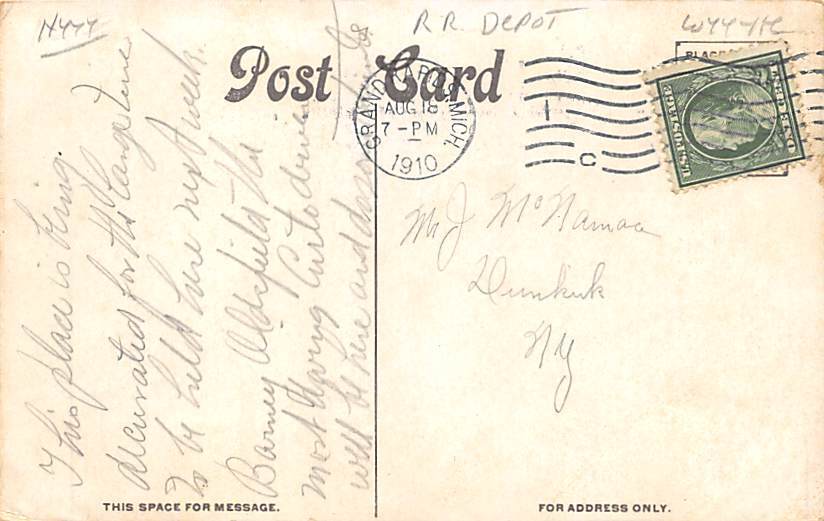 R.R. DEPOT
Post Card
GRAND RAPIDS, MICH.
AUG 18
7-PM
1910
C
U.S. POSTAGE
ONE CENT
This place is being
decorated for the
to be held here next week.
Barney Oldfield the
most daring auto driver
will be here and
Mr J McNamara
Dunkirk
NY
THIS SPACE FOR MESSAGE.
FOR ADDRESS ONLY.